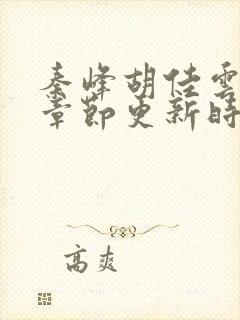 秦峰胡佳雲
章節更新時
高爽